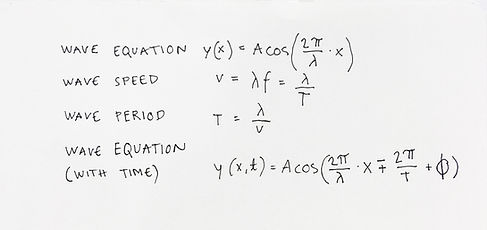 WAVE EQUATION y(x) = A cos(2π/λ · x)
WAVE SPEED v = λf = λ/T
WAVE PERIOD T = λ/v
WAVE EQUATION
(WITH TIME) y(x,t) = A cos(2π/λ · x ∓ 2π/T + ϕ)